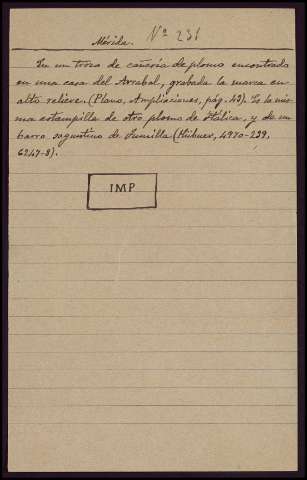 Mérida. Nº 231
En un trozo de cañería de plomo encontrado
en una casa del Arrabal, grabada la marca en
alto relieve. (Plano, Ampliaciones, pág. 43). Es la mis-
ma estampilla de otro plomo de Itálica, y de un
barro saguntino de Jumilla (Hübner, 4970-239,
6247-8).
IMP